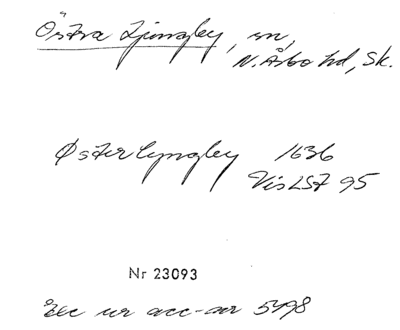 Östra Ljungby, sn,
N. Åsbo hd, Sk.
Østerlyngbey 1636
VisLST 95
Nr 23093
Exc ur acc-nr 5498